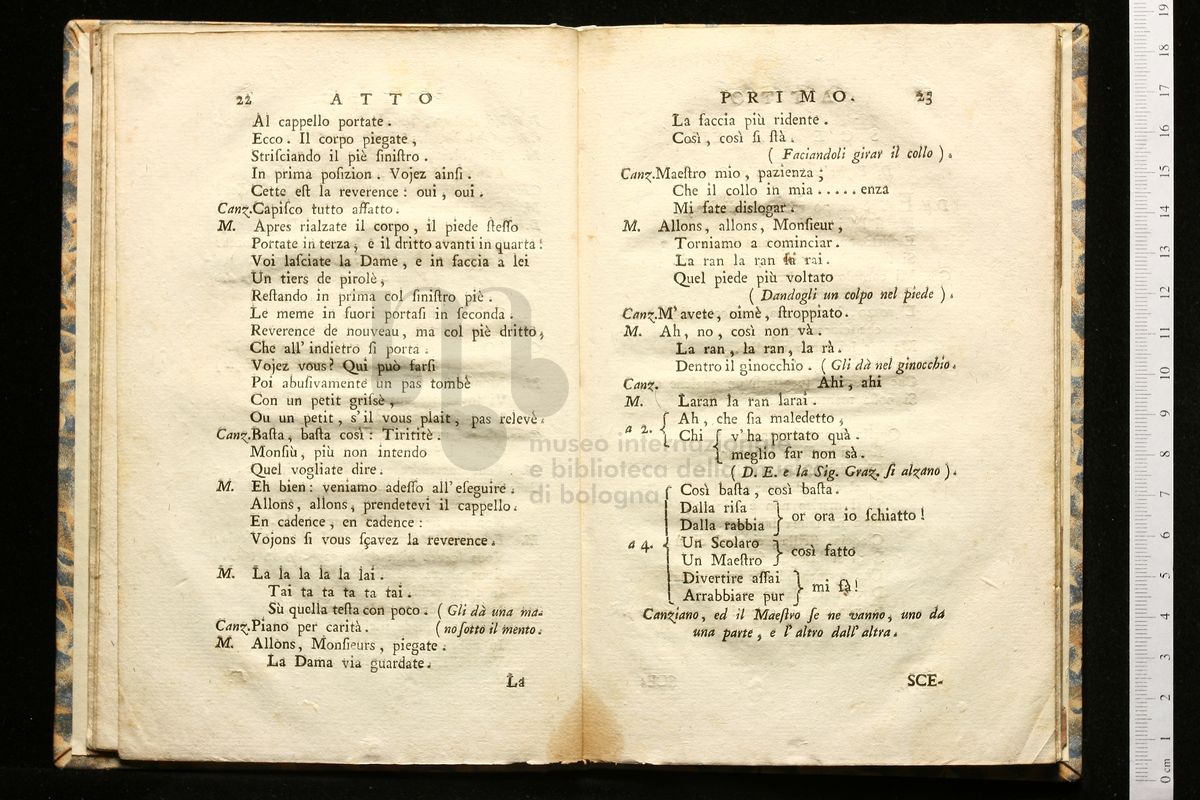 22 ATTO
Al cappello portate.
Ecco. Il corpo piegate,
Striſciando il piè ſiniſtro.
In prima poſizion. Vojez ainſi.
Cette eſt la reverence: oui, oui.
Canz. Capiſco tutto affatto.
M. Apres rialzate il corpo, il piede ſteſſo
Portate in terza, e il dritto avanti in quarta:
Voi laſciate la Dame, e in faccia a lei
Un tiers de pirolè,
Reſtando in prima col ſiniſtro piè.
Le meme in fuori portaſi in ſeconda.
Reverence de nouveau, ma col piè dritto,
Che all' indietro ſi porta.
Vojez vous? Quì può farſi
Poi abuſivamente un pas tombè
Con un petit griſsè,
Ou un petit, s'il vous plait, pas relevè.
Canz. Baſta, baſta così: Tirititè.
Monſiù, più non intendo
Quel vogliate dire.
M. Eh bien: veniamo adeſſo all' eſeguire.
Allons, allons, prendetevi il cappello.
En cadence, en cadence:
Vojons ſi vous ſçavez la reverence.
M. La la la la la lai.
Tai ta ta ta ta tai.
Sù quella teſta con poco. (Gli dà una ma-
Canz. Piano per carità. (no ſotto il mento.
M. Allons, Monſieurs, piegate.
La Dama via guardate.
La
PRIMO. 23
La faccia più ridente.
Così, così ſi ſtà.
(Faciandoli girar il collo).
Canz. Maeſtro mio, pazienza;
Che il collo in mia.....enza
Mi fate dislogar.
M. Allons, allons, Monſieur,
Torniamo a cominciar.
La ran la ran rai.
Quel piede più voltato
(Dandogli un colpo nel piede).
Canz. M' avete, oimè, ſtroppiato.
M. Ah, no, così non và.
La ran, la ran, la rà.
Dentro il ginocchio. (Gli dà nel ginocchio.
Canz. Ahi, ahi
M. Laran la ran larai.
a 2. { Ah, che ſia maledetto,
Chi { v' ha portato quà.
meglio far non sà.
(D. E. e la Sig. Graz. ſi alzano).
a 4. { Così baſta, così baſta.
Dalla riſa
Dalla rabbia } or ora io ſchiatto!
Un Scolaro
Un Maeſtro } così fatto
Divertire aſſai
Arrabbiare pur } mi fà!
Canziano, ed il Maeſtro ſe ne vanno, uno da
una parte, e l' altro dall' altra.
SCE-
museo internazionale
e biblioteca della
di bologna
0 cm 1 2 3 4 5 6 7 8 9 10 11 12 13 14 15 16 17 18 19